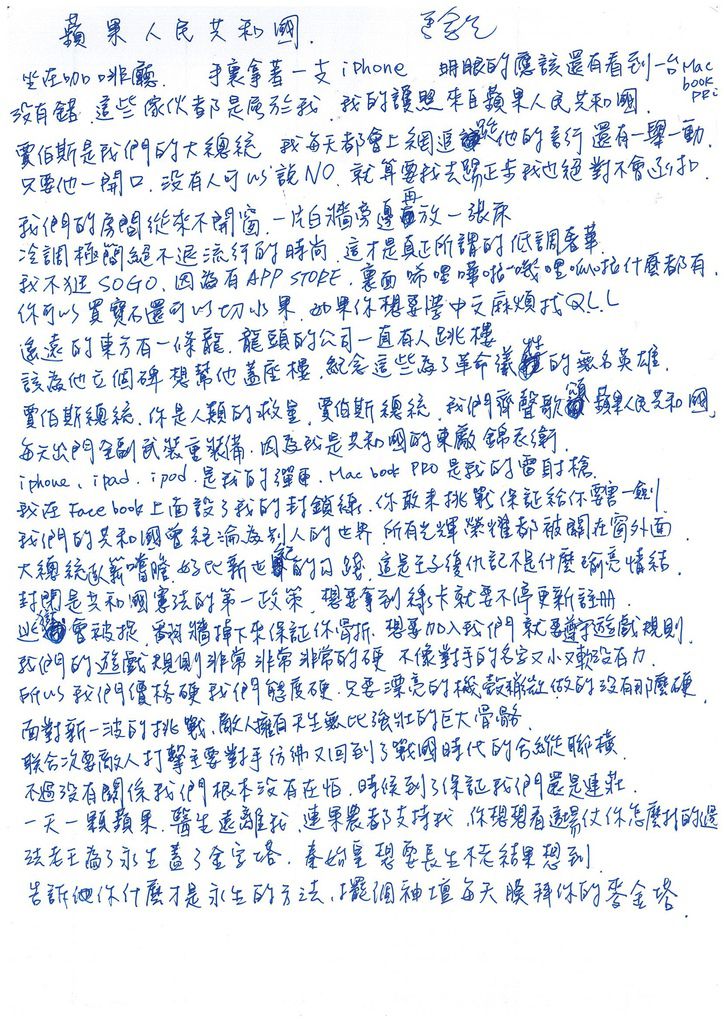 蘋果人民共和國.
坐在咖啡廳 手裏拿著一支iphone 明眼的應該還有看到一台Mac book PRO
沒有錯 這些傢伙都是屬於我. 我的護照來自蘋果人民共和國.
賈伯斯是我們的大總統 我每天都會上網追蹤他的言行還有一舉一動.
只要他一開口.沒有人可以說NO.就算要我去踢正步我也絕對不會凸扣.
我們的房間從來不開窗.一片白牆旁邊再放一張床
冷調極簡絕不退流行的時尚 這才是真正所謂的低調奢華.
我不逛SOGO.因為有APP STORE.裏面唏哩嘩啦嘰哩呱啦什麼都有.
你可以買寶石還可以切水果.如果你想要學中文麻煩找Q.L.L
遙遠的東方有一條龍.龍頭的公司一直有人跳樓
該為他立個碑想幫他蓋座樓.紀念這些為了革命犧牲的無名英雄.
賈伯斯總統.你是人類的救星.賈伯斯總統.我們齊聲歌頌蘋果人民共和國」
每天出門全副武裝重裝備.因為我是共和國的東廠錦衣衛.
iphone、ipad、ipod.是我的彈匣.Mac book PRO是我的雷射槍.
我在Facebook上面設了我的封鎖線.你敢來挑戰保証給你要害一劍
我們的共和國曾經淪為別人的世界 所有光輝榮耀都被關在窗外面.
大總統臥薪嘗膽.好比新世紀的勾踐.這是王子復仇記不是什麼瑜亮情結.
封閉是共和國憲法的第一政策.想要拿到綠卡就要不停更新註冊
逃獄會被捉.翻牆掉下來保証你骨折.想要加入我們就要遵守遊戲規則.
我們的遊戲規則非常非常非常的硬 不像對手的名字又小又軟沒有力.
所以我們價格硬我們態度硬.只要漂亮的機殼稍微做的沒有那麼硬.
面對新一波的挑戰.敵人擁有天生無比強壯的巨大骨骼.
聯合次要敵人打擊主要對手彷彿又回到了戰國時代的合縱聯橫.
不過沒有關係我們根本沒有在怕.時候到了保証我們還是連莊.
一天一顆蘋果.醫生遠離我.連果農都支持我.你想想看這場仗你怎麼打的過
法老王為了永生蓋了金字塔.秦始皇想要長生不老結果想到.
告訴你什麼才是永生的方法.擺個神壇每天膜拜你的麥金塔.